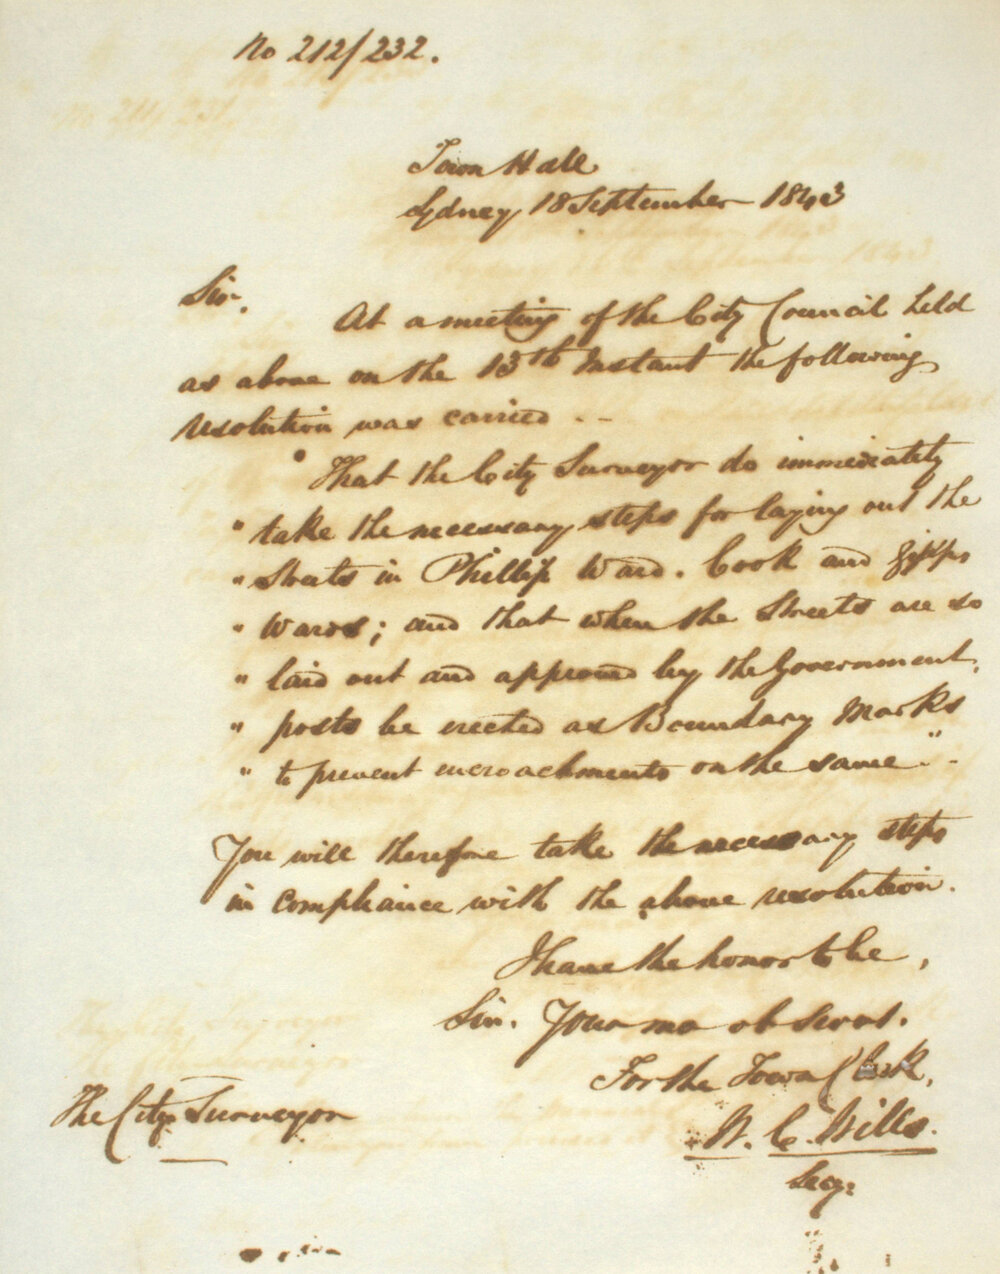 No 212/232.
Town Hall
Sydney 18 September 1843
Sir,
At a meeting of the City Council held
as above on the 13th Instant the following
resolution was carried . --
" That the City Surveyor do immediately
" take the necessary steps for laying out the
" Streets in Phillip Ward. Cook and Gipps
" Wards; and that when the Streets are so
" laid out and approved by the Government,
" posts be erected as Boundary Marks
" to prevent encroachments on the same " -
You will therefore take the necessary steps
in compliance with the above resolution.
I have the honor to be,
Sir. Your mo ob servt.
For the Town Clerk,
W. C. Wills.
The City Surveyor